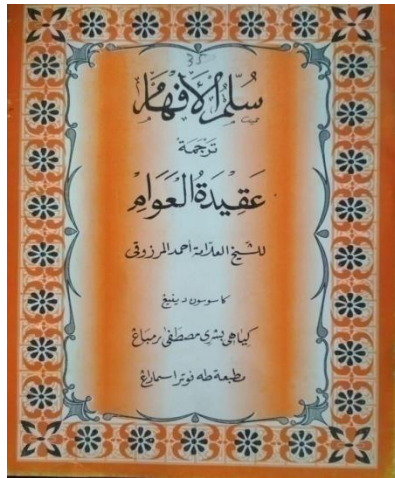 سُلَّمُ الْأَفْهَامِ
تَرْجَمَةُ
عَقِيْدَةُ الْعَوَامِ
للشيخ العلامة أحمد المرزوقي
كاسوسون دينيڠ
كياهي بشرى مصطفى رمباڠ
مطبعة طه فوترا سماراڠ